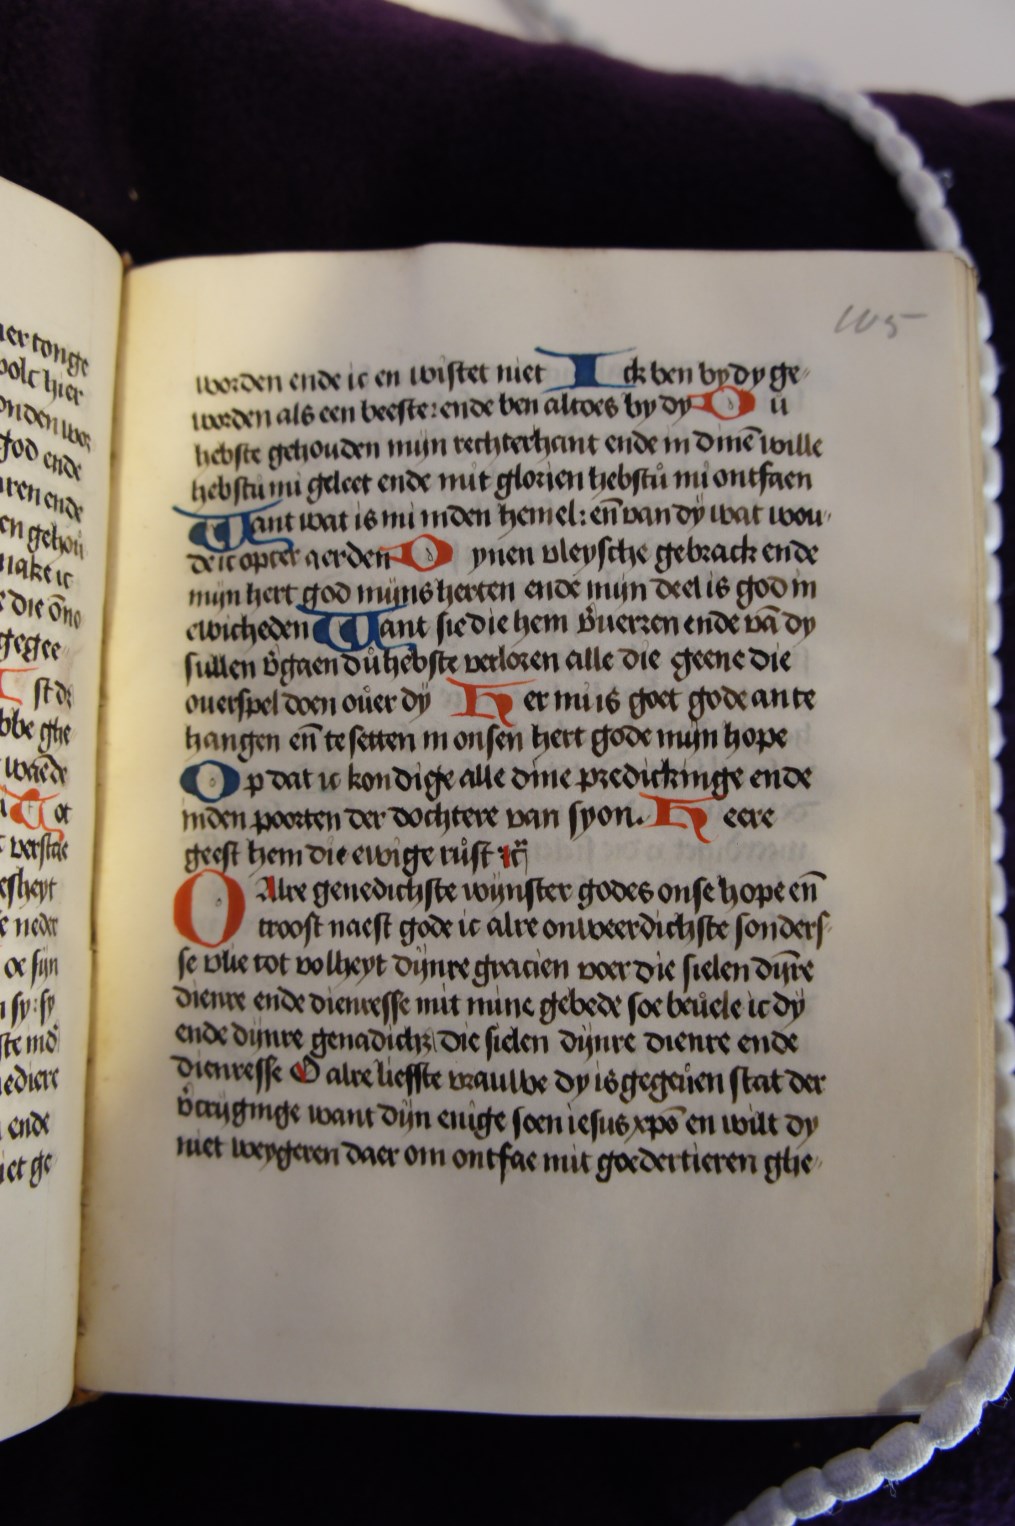 105
worden ende ic en wistet niet Ick ben by dy ge
worden als een beeste: ende ben altoes by dy Du
hebste gehouden mijn rechterhant ende in dinē wille
hebstu mi geleet ende mit glorien hebstu mi ontfaen
Want wat is mi inden hemel: eñ van dy wat wou
de ic opter aerden Dynen vleysche gebrack ende
mijn hert god mijns herten ende mijn deel is god in
ewicheden Want sie die hem v̄uerren ende vā dy
sullen v̄gaen du hebste verloren alle die geene die
ouerspel doen ouer dy Her mi is goet gode an te
hangen eñ te setten in onsen hert gode mijn hope
Op dat ic kondige alle dine predickinge ende
inden poorten der dochtere van syon. Heere
geest hem die ewige rust
O Alre genedichste wijnster godes onse hope eñ
troost naest gode ic alre onweerdichste sonders
se vlie tot volheyt dijnre gracien voer die sielen dijre
dienre ende dienresse mit mine gebede soe beuele ic dy
ende dijnre genadich; die sielen dijnre dienre ende
dienresse O alre liefste vrauwe dy is gegeuen stat der
want dijn enige soen iesus xpō en wilt dy
niet weygeren daer om ontfae mit goedertieren ghe
er tonge
volc hier
onden wor
god ende
ren ende
en gehou
make ic
die
gegee
st di
bbe ghe
waēde
Tot
verstae
esheyt
neder
oe sijn
sy: sy
ste
ediere
ende
iet ge